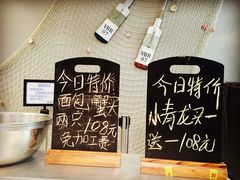 VBR
07
VBR
03
今日特价
面包蟹买
两只108元
免加工费
今日特价
小青龙买一
送一108元